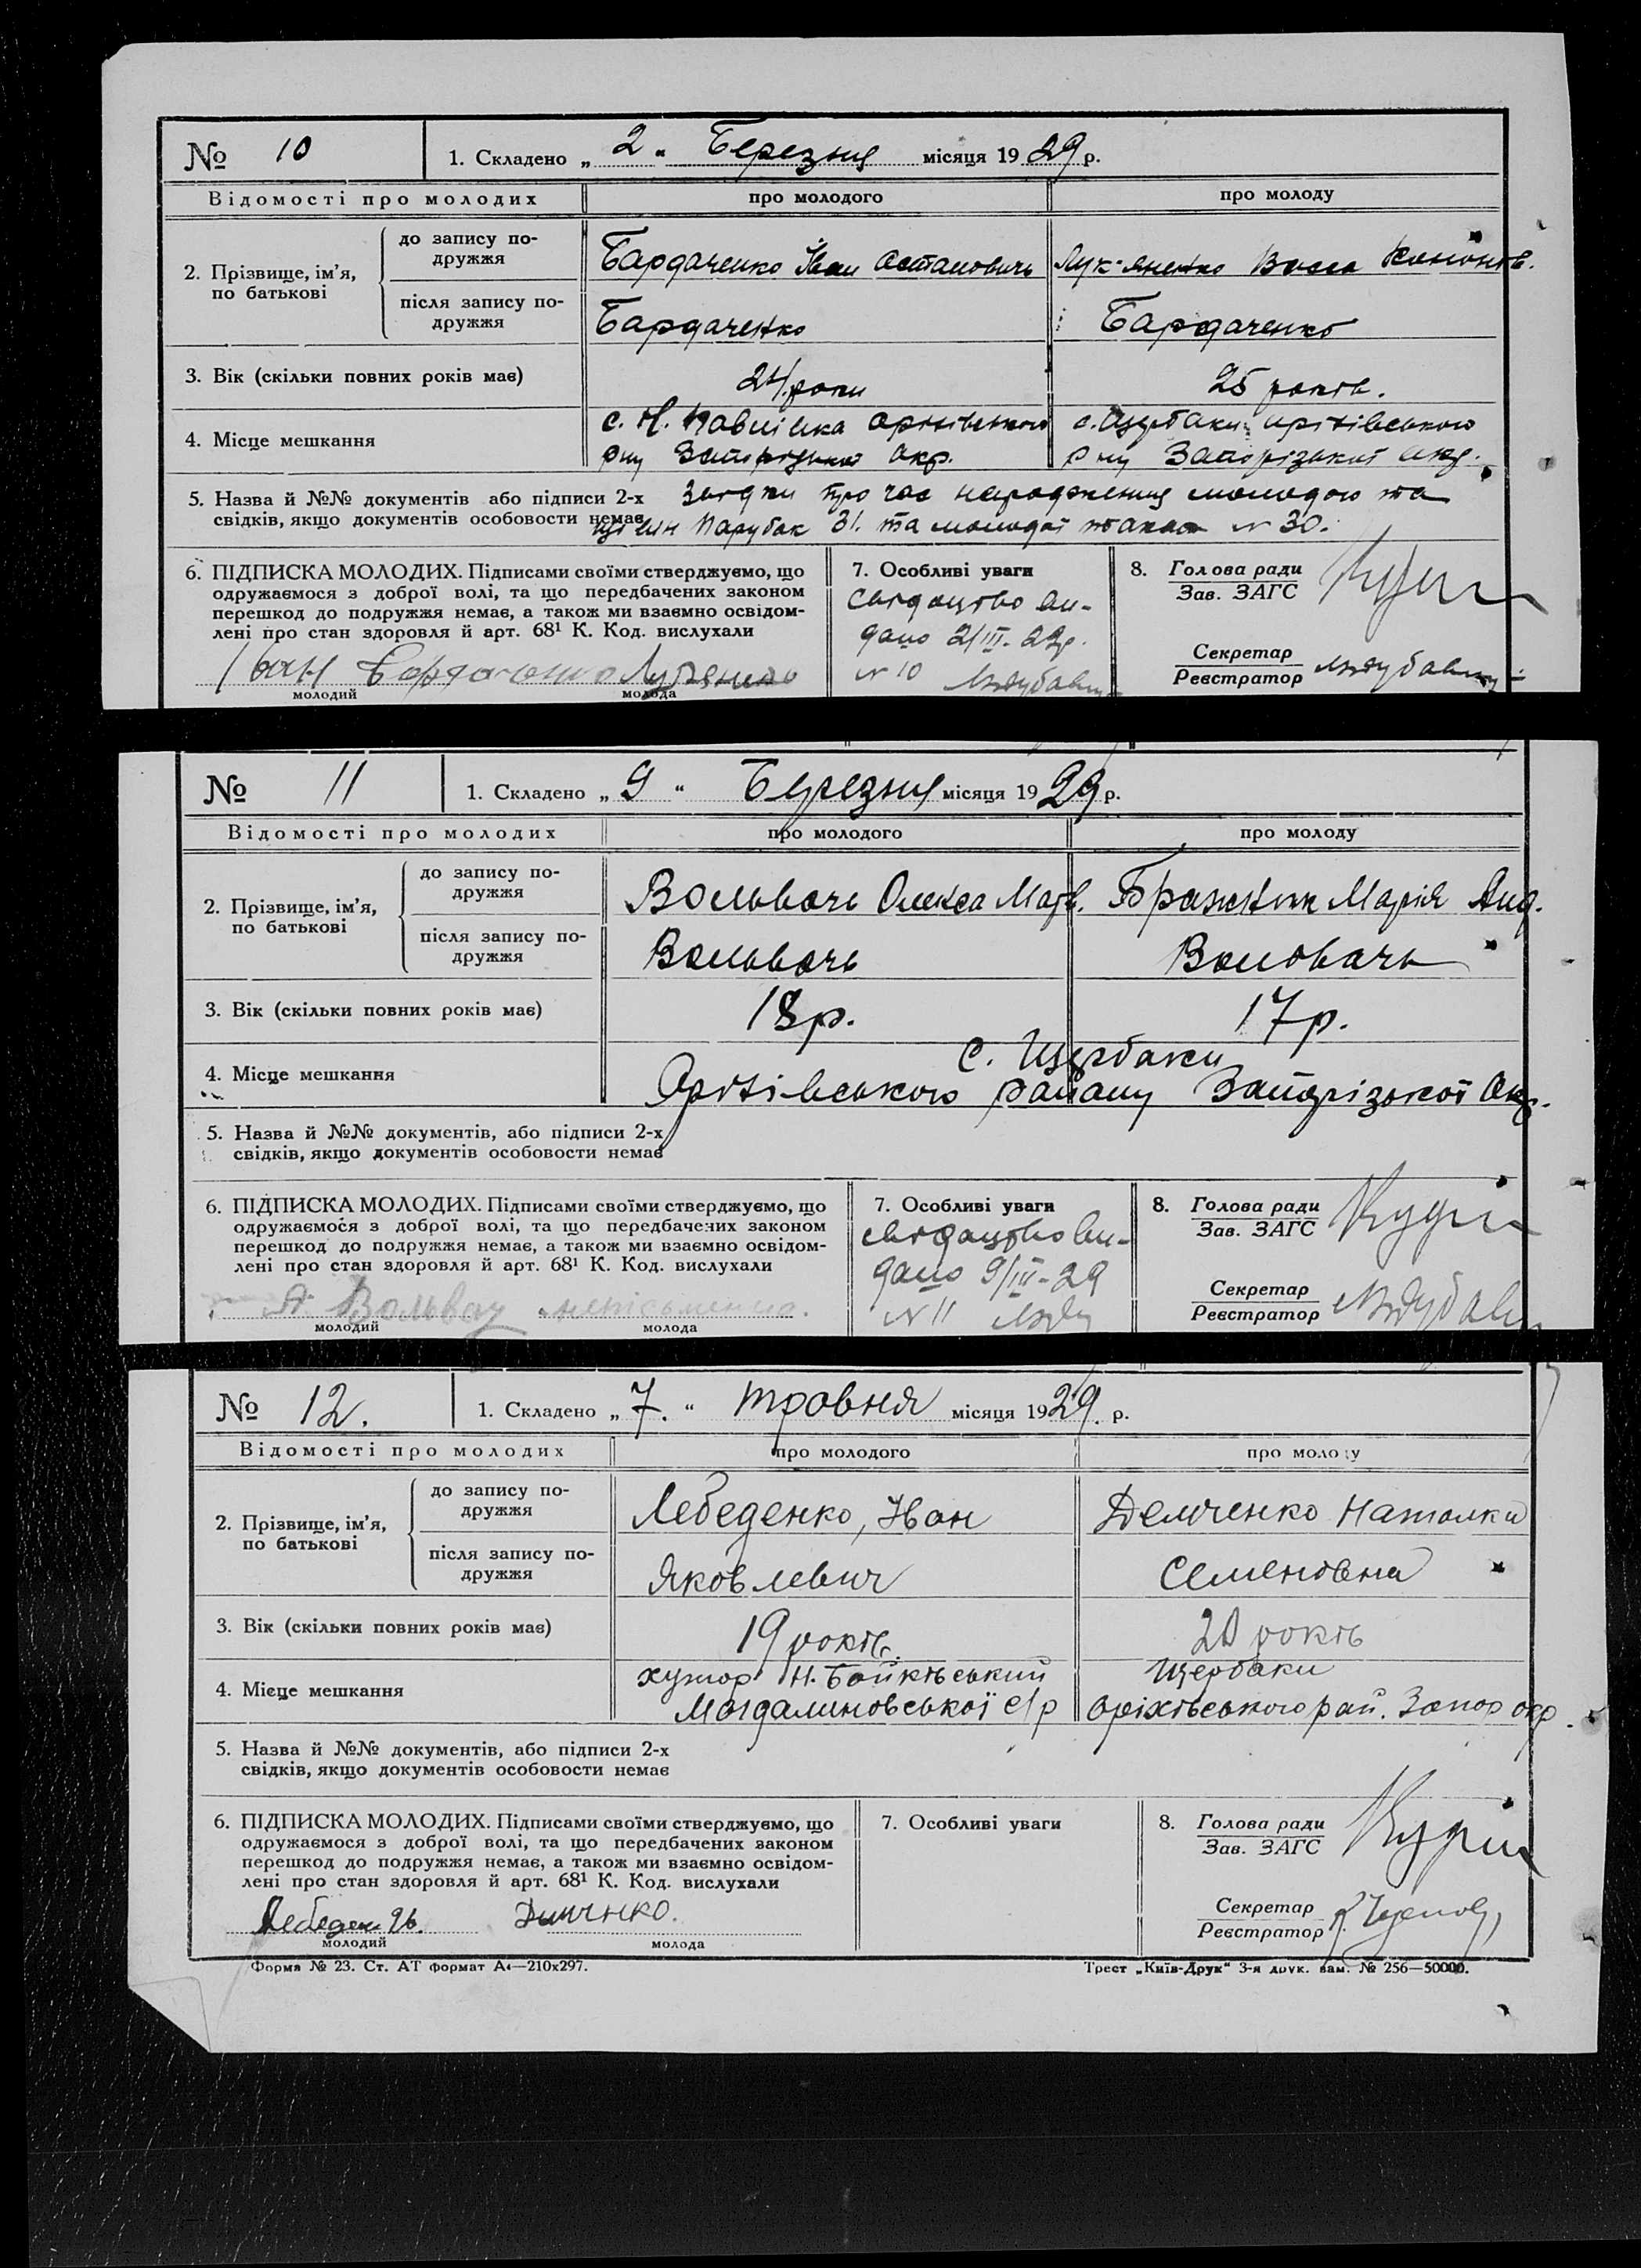 № 10 1. Складено „ 2 " Березня місяця 1929 р.
Відомості про молодих про молодого про молоду
2. Прізвище, ім'я, по батькові
до запису подружжя Бардаченко Іван Остапович Лук'яненко Васса Кононів.
після запису подружжя Бардаченко Бардаченко
3. Вік (скільки повних років має) 24 роки 25 років.
4. Місце мешкання с. Н. Павлівка оріхівського с. Щербаки оріхівського
р ну Запорізької окр. р ну Запорізької окр.
5. Назва й №№ документів або підписи 2-х про час народження молодого та
свідків, якщо документів особовости немає 31. та молодої № 30.
6. ПІДПИСКА МОЛОДИХ. Підписами своїми стверджуємо, що
одружаємося з доброї волі, та що передбачених законом
перешкод до подружжя немає, а також ми взаємно освідом-
лені про стан здоровля й арт. 68¹ К. Код. вислухали
Іван Бардаченко
молодий молода
7. Особливі уваги
свідоцтво ви-
дано 2/III-29р.
№ 10
8. Голова ради
Зав. ЗАГС
Секретар
Реєстратор
№ 11 1. Складено „ 9 " Березня місяця 1929 р.
Відомості про молодих про молодого про молоду
2. Прізвище, ім'я, по батькові
до запису подружжя Вольвачь Олекса Матв. Бражник Марія Анд.
після запису подружжя Вольвачь Вольвачь
3. Вік (скільки повних років має) 18р. 17р.
с. Щербаки
4. Місце мешкання Оріхівського району Запорізької Окр.
5. Назва й №№ документів, або підписи 2-х
свідків, якщо документів особовости немає
6. ПІДПИСКА МОЛОДИХ. Підписами своїми стверджуємо, що
одружаємося з доброї волі, та що передбачених законом
перешкод до подружжя немає, а також ми взаємно освідом-
лені про стан здоровля й арт. 68¹ К. Код. вислухали
А Вольвач неписьменна.
молодий молода
7. Особливі уваги
свідоцтво ви-
дано 9/III-29
№ 11
8. Голова ради
Зав. ЗАГС
Секретар
Реєстратор
№ 12. 1. Складено „ 7. " травня місяця 1929. р.
Відомості про молодих про молодого про молоду
2. Прізвище, ім'я, по батькові
до запису подружжя Лебеденко, Іван Демченко Наталка
після запису подружжя Яковлевич Семеновна
3. Вік (скільки повних років має) 19 років. 20 років
4. Місце мешкання хутор Н. Бойківський Щербаки
Магдалиновської с/р Оріхівського рай. Запор окр.
5. Назва й №№ документів, або підписи 2-х
свідків, якщо документів особовости немає
6. ПІДПИСКА МОЛОДИХ. Підписами своїми стверджуємо, що
одружаємося з доброї волі, та що передбачених законом
перешкод до подружжя немає, а також ми взаємно освідом-
лені про стан здоровля й арт. 68¹ К. Код. вислухали
Демченко.
молодий молода
7. Особливі уваги
8. Голова ради
Зав. ЗАГС
Секретар
Реєстратор
Форма № 23. Ст. АТ формат А4—210x297. Трест „Київ-Друк" 3-я друк. зам. № 256—50000.